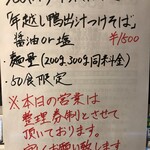 「年越し鴨出汁つけそば」
醤油or塩 ¥1500
・麺量(200g、300g同料金)
・50食限定
※本日の営業は
整理券制とさせて
頂いております。